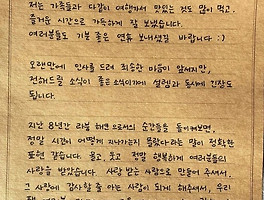 저는 가족들과 다같이 여행가서 맛있는 것도 많이 먹고,
즐거운 시간으로 가득하게 잘 보냈습니다.
여러분들도 기분 좋은 연휴 보내셨길 바랍니다 :)
오랜만에 인사를 드려 죄송한 마음이 앞서지만,
전해드릴 소식이 좋은 소식이기에 설렘과 동시에 긴장도
됩니다.
지난 8년간 러블 해면으로서의 순간들을 돌이켜보면,
정말 시간이 어떻게 지나가는지 몰랐다라는 말이 정확한
표현 같습니다. 울고 웃고 정말 행복하게 여러분들의
사랑을 받았습니다. 사랑 받는 사람으로 만들어 주셔서,
그 사랑에 감사할 줄 아는 사람이 되게 해주셔서, 우리